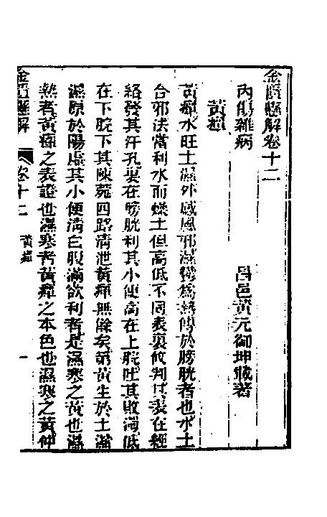 金匱懸解卷十二
昌邑黃元御坤載著
內傷雜病
黃疸
黃疸水旺土濕外感風邪濕鬱為熱傳於膀胱者也水土
合邪法當利水而燥土但高低不同表裏攸判其表在經
絡發其汗孔裏在膀胱利其小便高在上脘吐其敗濁低
在下脘下其陳菀四路清泄黃癉無餘矣第黃生於土濕
濕原於陽虛其小便清白腹滿欲利者是濕寒之黃也濕
熱者黃癉之表證也濕寒者黃癉之本色也濕寒之黃仲
金匱懸解
卷十二
黃疸
一